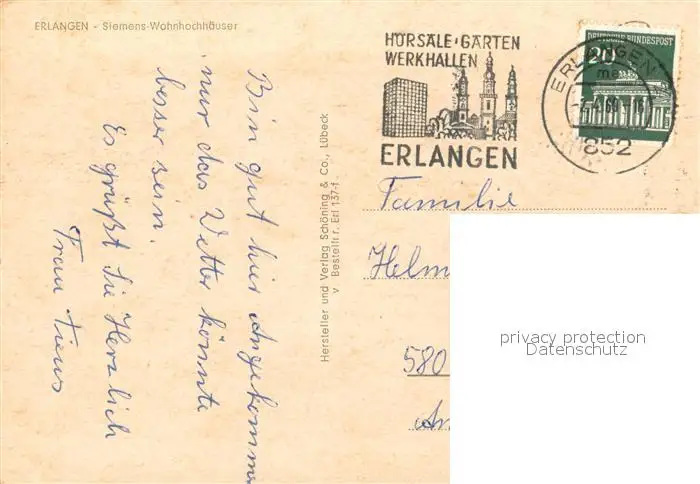 ERLANGEN - Siemens-Wohnhochhäuser
Bin gut hier Angekommen
nur das Wetter könnte
besser sein.
Es grüßt Sie Herzlich
Frau
Hersteller und Verlag Schöning & Co., Lübeck
v Bestellnr. Erl 137-f
HÖRSÄLE·GÄRTEN
WERKHALLEN
ERLANGEN
DEUTSCHE BUNDESPOST
20
ERLANGEN
852
Familie
Helm
580
privacy protection
Datenschutz